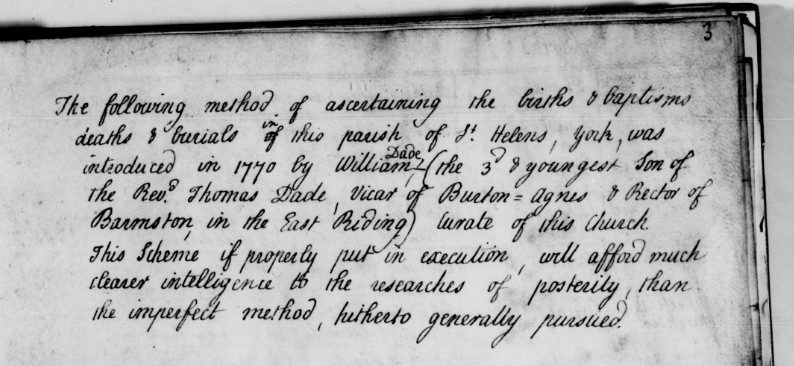 3
The following method of ascertaining the births & baptisms
deaths & burials in of this parish of St Helens, York, was
introduced in 1770 by William Dade (the 3d & youngest Son of
the Revd Thomas Dade, Vicar of Burton=Agnes & Rector of
Barmston, in the East Riding) Curate of this Church
This Scheme if properly put in execution, will afford much
clearer intelligence to the researches of posterity, than
the imperfect method, hitherto generally pursued.